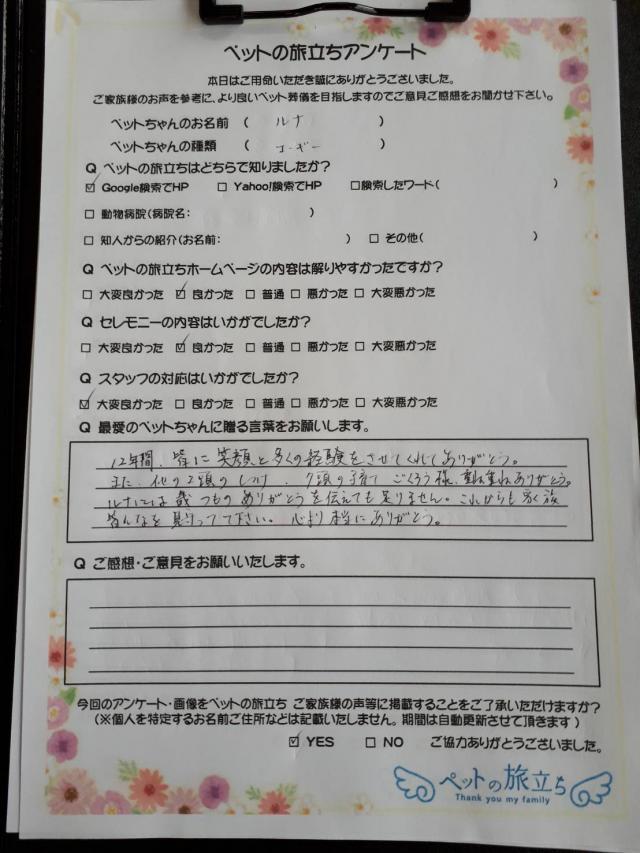 ペットの旅立ちアンケート
本日はご用命いただき誠にありがとうございました。
ご家族様のお声を参考に、より良いペット葬儀を目指しますのでご意見ご感想をお聞かせ下さい。
ペットちゃんのお名前 ( ルナ )
ペットちゃんの種類 ( コーギー )
Q ペットの旅立ちはどちらで知りましたか?
☑ Google検索でHP □ Yahoo!検索でHP □検索したワード( )
□ 動物病院(病院名: )
□ 知人からの紹介(お名前: ) □ その他( )
Q ペットの旅立ちホームページの内容は解りやすかったですか?
□ 大変良かった ☑ 良かった □ 普通 □ 悪かった □ 大変悪かった
Q セレモニーの内容はいかがでしたか?
□ 大変良かった ☑ 良かった □ 普通 □ 悪かった □ 大変悪かった
Q スタッフの対応はいかがでしたか?
☑ 大変良かった □ 良かった □ 普通 □ 悪かった □ 大変悪かった
Q 最愛のペットちゃんに贈る言葉をお願いします。
12年間、皆に笑顔と多くの経験をさせてくれてありがとう。
また、他の2頭の 、7頭の子育て ごくろう様、重ね重ねありがとう。
ルナには幾つものありがとうを伝えても足りません。これからも 家族
皆んなを見守って下さい。心より本当にありがとう。
Q ご感想・ご意見をお願いいたします。
今回のアンケート・画像をペットの旅立ち ご家族様の声等に掲載することをご了承いただけますか?
(※個人を特定するお名前ご住所などは記載いたしません。期間は自動更新させて頂きます)
☑ YES □ NO ご協力ありがとうございました。
ペットの旅立ち
Thank you my family